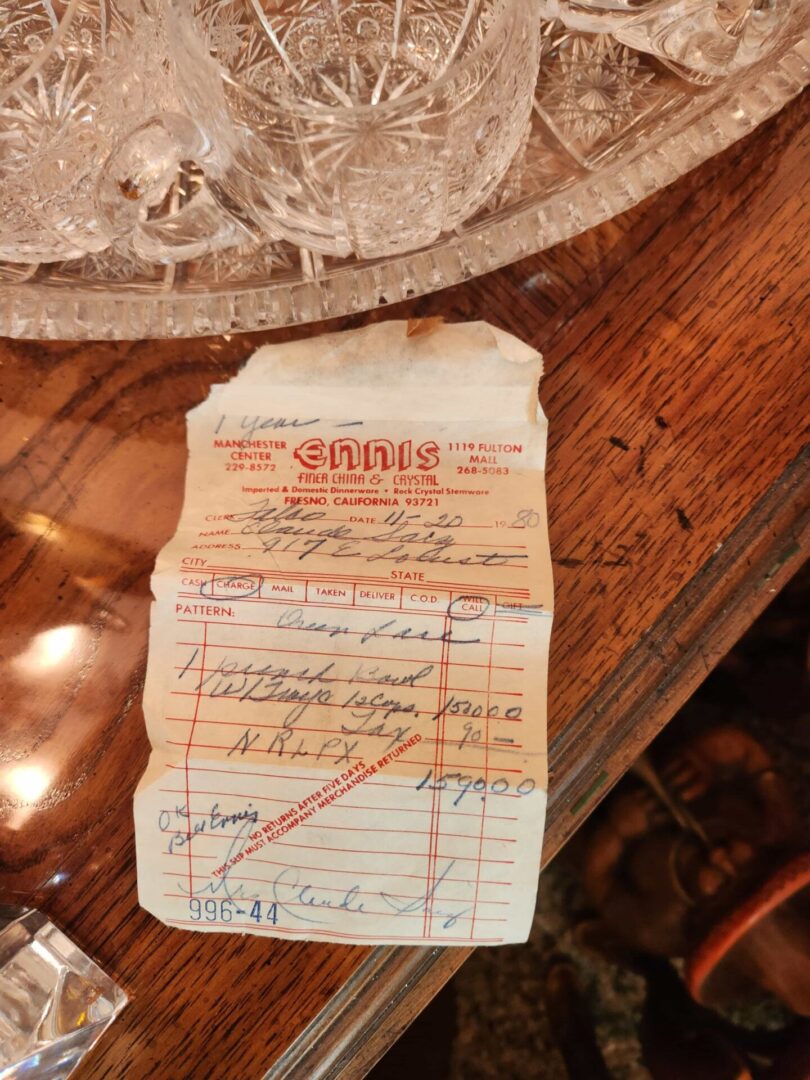 1 year -
MANCHESTER CENTER 229-8572
ENNIS
FINER CHINA & CRYSTAL
1119 FULTON MALL 268-5083
Imported & Domestic Dinnerware • Rock Crystal Stemware
FRESNO, CALIFORNIA 93721
CLERK DATE 11-20 1980
NAME Claude
ADDRESS 917 E Locust
CITY STATE
CASH CHARGE MAIL TAKEN DELIVER C.O.D. WILL CALL GIFT
PATTERN: Queen Lace
1 Punch Bowl
W/Traye 12 Cups. 1500.00
Tax 90 -
N R L P X
1590.00
NO RETURNS AFTER FIVE DAYS
THIS SLIP MUST ACCOMPANY MERCHANDISE RETURNED
OK
Ben Ennis
Mrs Claude
996-44